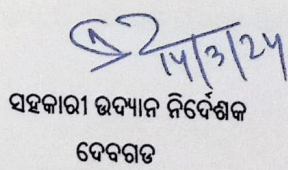 14/3/24
ସହକାରୀ ଉଦ୍ୟାନ ନିର୍ଦେଶକ
ଦେବଗଡ